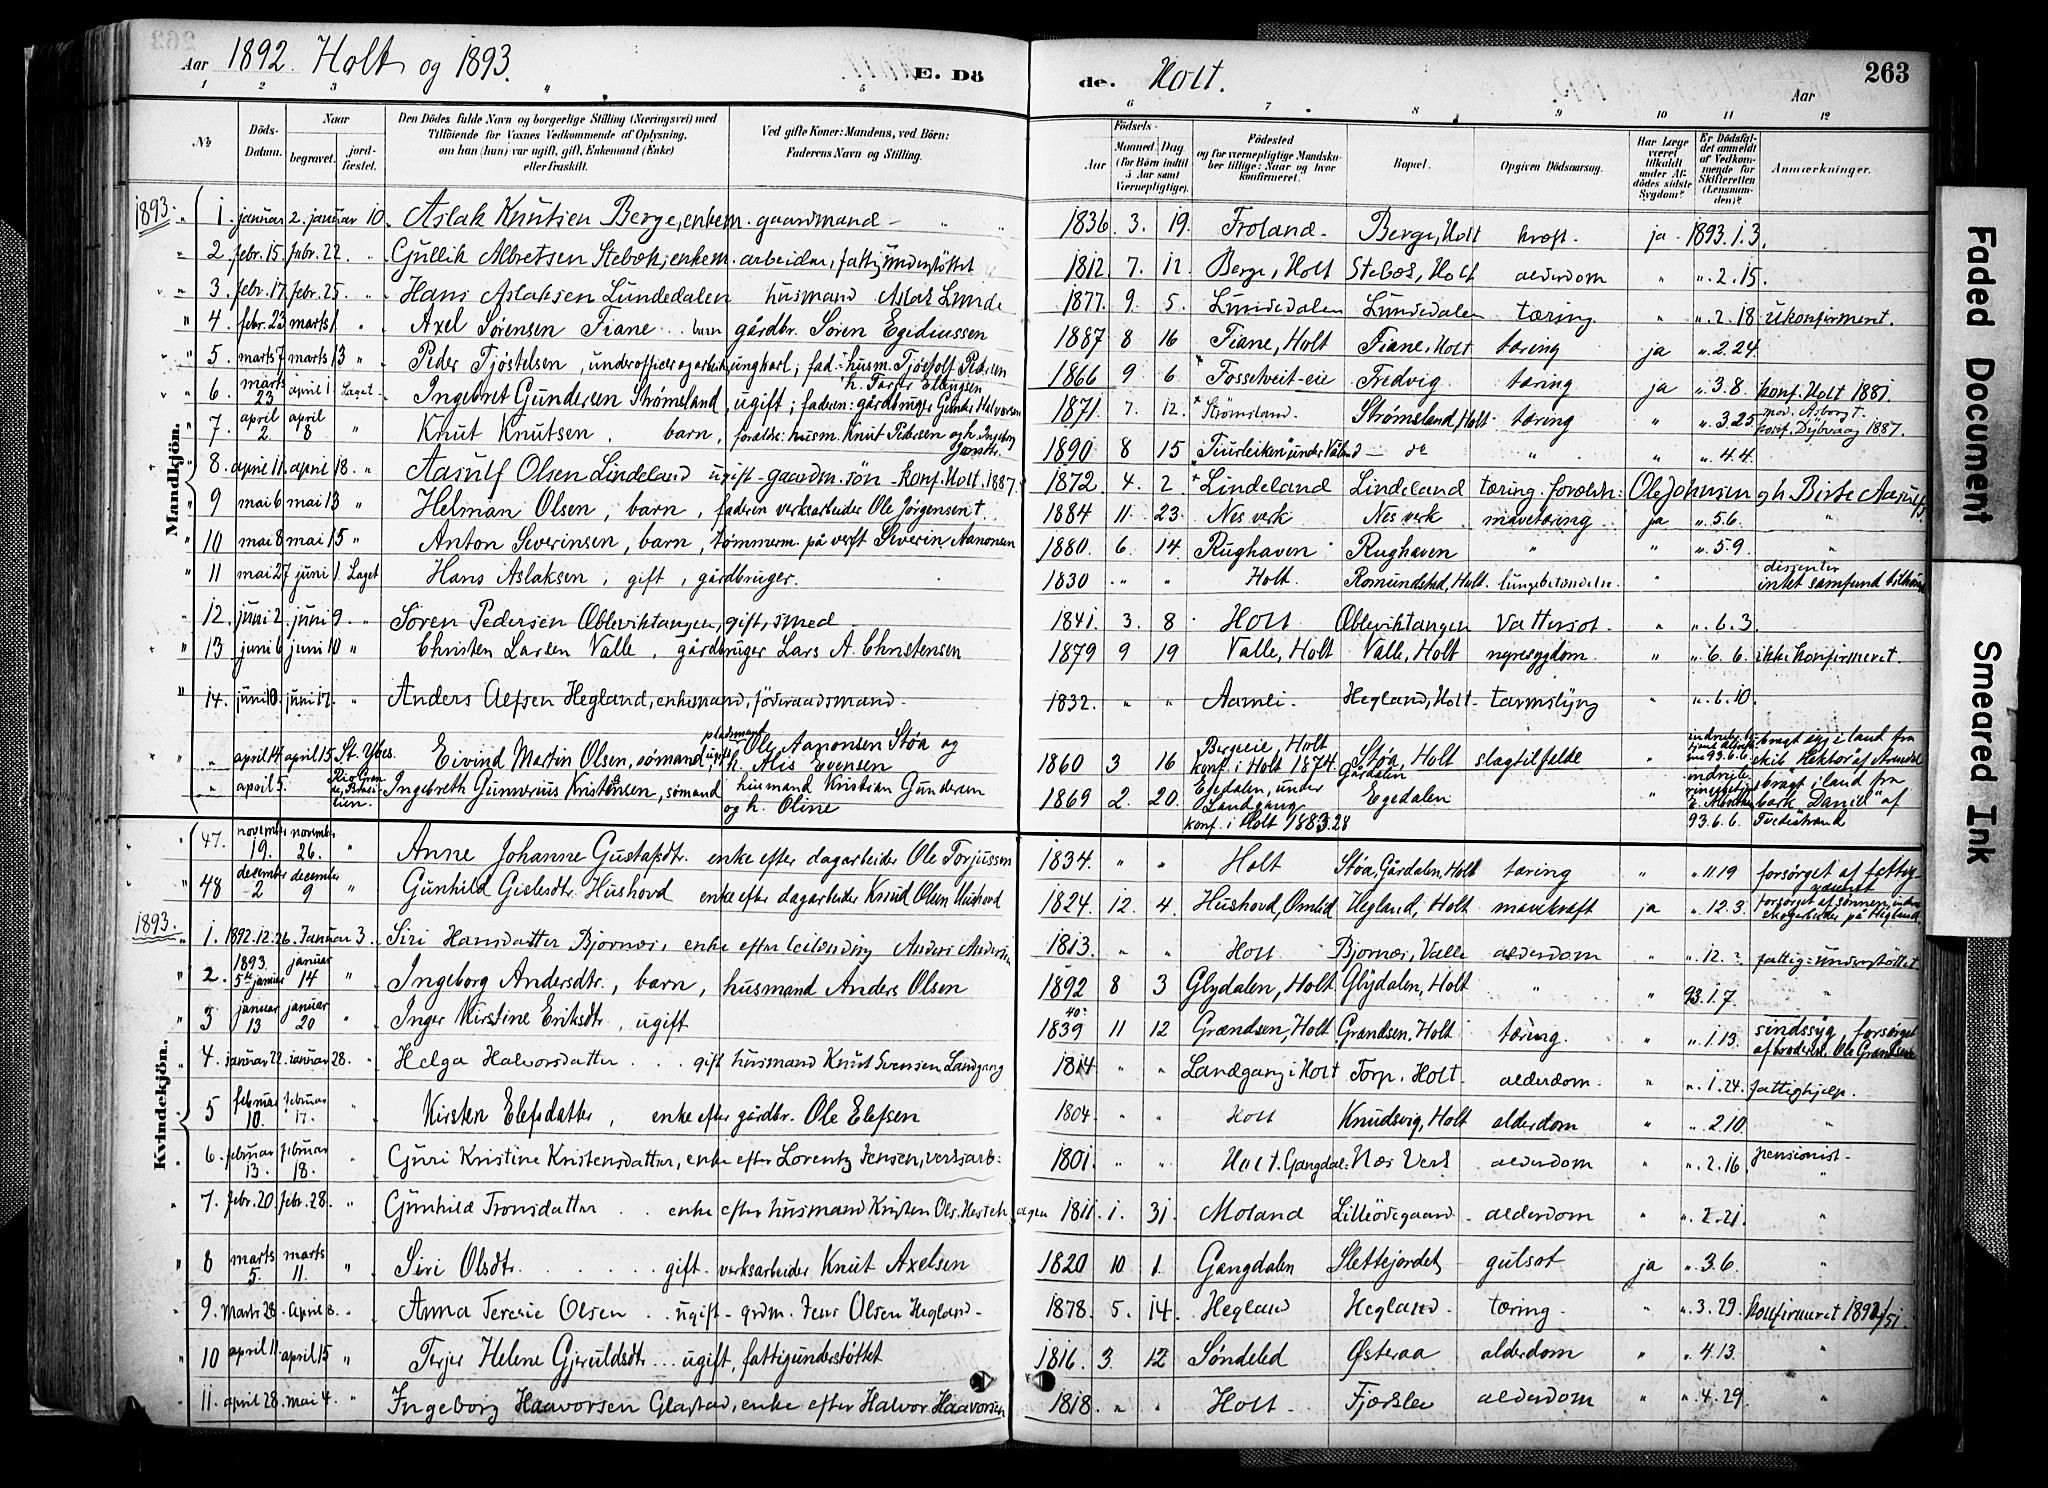 Aar 1892. Holt og 1893. E. Dö
de. Holt. Aar 263
1 2 3 4 5 6 7 8 9 10 11 12
No
Döds-Datum.
Naar
begravet.
jord-fæstet.
Den Dödes fulde Navn og borgerlige Stilling (Næringsvei) med
Tilföiende for Voxnes Vedkommende af Oplysning,
om han (hun) var ugift, gift, Enkemand (Enke)
eller fraskilt.
Ved gifte Koner: Mandens, ved Börn:
Faderens Navn og Stilling.
Födsels-
Aar
Maaned (for Börn indtil 5 Aar samt Værnepligtige).
Dag
Födested
og for værnepligtige Mandska-
ber tillige: Naar og hvor
konfirmeret.
Bopæl.
Opgiven Dödsaarsag.
Har Læge været tilkaldt under Af-dödes sidste Sygdom?
Er Dödsfal-det anmeldt af Vedkom-mende for Skifteretten (Lensman-den)?
Anmærkninger.
Mandkjön.
1893. 1. januar 2. januar 10. Aslak Knutsen Berge, enkem. gaardmand - 1836. 3. 19. Froland - Berge, Holt kræft. ja 1893.1.3.
" 2 febr. 15. febr. 22. " Gullik Albretsen Stebok, enkem. arbeider, fattigünderstöttet 1812. 7. 12. Berge, Holt Stebok, Holt alderdom " ". 2. 15.
" 3. febr. 17. febr. 25. " Hans Aslaksen Lundedalen husmand Aslak Lunde 1877. 9. 5. Lundedalen Lundedalen tæring " ". 2. 18 ukonfirmeret.
" 4. febr. 23 marts 1 " Axel Sörensen Fiane .. barn gårdbr. Sören Egidiussen 1887 8 16 Fiane, Holt Fiane, Holt tæring ja ". 2. 24.
" 5. marts 7 marts 13 " Peder Tjöstelsen, underofficer og arbeider, ungkarl; fad.: husm. Tjöstolf Pedersen 1866 9 6. Fosselveit-eie Fredvig. tæring ja ". 3. 8. konf. Holt 1881.
" 6. marts 23 april 1 Laget Ingebret Gundersen Strömsland, ugift; faderen: gårdbruger Gunder Halvorsen 1871. 7. 12. Strömsland. Strömsland, Holt tæring " ". 3. 25 konf. Dybvaag 1887.
" 7. april 2 april 8 " Knut Knutsen. barn, forældre: husm. Knut Pedersen og h. Ingeborg 1890 8 15 - do " " ". 4. 4.
" 8. april 11. april 18. " Aasulf Olsen Lindeland ugift - gaardm. sön - konf. Holt. 1887. 1872. 4. 2 Lindeland Lindeland tæring. foreldr: Ole Johnsen og h. Birte Aasulfs
" 9 mai 6 mai 13 " Helman Olsen, barn, faderen verksarbeider Ole Jörgensen †. 1884 11. 23. Nes verk Nes verk mavetæring. ja ". 5. 6. "
" 10 mai 8 mai 15 " Anton Severinsen, barn, tömmerm. på verft Severin Aanonsen 1880. 6. 14. Rughaven Rughaven " " ". 5. 9. "
" 11 mai 27 juni 1 Laget Hans Aslaksen, gift, gårdbruger. 1830 " " Holt. Romundstad, Holt. lungebetændelse. " dissenter intet samfund
" 12. juni 2. juni 9 " Sören Pedersen Oblevikstangen, gift, smed 1841. 3. 8 Holt Obleviktangen Vattersot. " ". 6. 3.
" 13 juni 6 juni 10 " Christen Larsen Valle, gårdbruger Lars A. Christensen 1879 9 19 Valle, Holt Valle, Holt nyresygdom. " ". 6. 6. ikke konfirmeret.
" 14. juni 10. juni 17. " Anders Olefsen Hegland, enkemand, föderaadsmand. 1832. " " Aamli. Hegland, Holt tarmslyng " ". 6. 10.
" " april 14 april 15 St. Ybes. Eivind Martin Olsen, sömand, ugift, pladsmand Ole Aanonsen Stöa og h. Alis Evensen 1860 3 16 Bergeeie, Holt konf. i Holt 1874. Stöa, Holt slagtilfelde 93.6.6 i land fra skib "Hektor" af Arendal
" " april 5. Rio Grande, Brasilien. Ingebreth Gunnerius Kristensen, sömand husmand Kristian Gundersen og h. Oline 1869 2. 20. Egedalen, under Landgang konf. i Holt 1883.28 Gårdalen Egedalen 93.6.6. i land fra bark "Daniel" af Tvedestrand
Kvindekjön.
47. november 19. november 26. " Anne Johanne Gustafsdtr. enke efter dagarbeider Ole Torjussen 1834. " " Holt Stöa, Gårdalen, Holt tæring " ". 11. 19 forsörget af fattigvæsenet
" 48 december 2 december 9 " Gunhild Gislesdtr. Hushovd enke efter dagarbeider Knud Olsen Hushovd 1824. 12. 4. Hushovd, Omlid Hegland, Holt mavekræft ja ". 12. 3. forsörget af sönnen, på Hegland
1893. " 1. 1892.12.26. Januar 3. " Siri Hansdatter Bjornæs, enke efter Anders Andersen 1813. " " Holt Bjornæs, Valle alderdom " ". 12. ? fattig-understöttet
" 2. 1893. 5te januar januar 14 " Ingeborg Andersdtr., barn, husmand Anders Olsen 1892 8 3 Glydalen, Holt Glydalen, Holt " " 93. 1. 7. "
" 3 januar 13 januar 20 " Inger Kirstine Eriksdtr, ugift 1839 40? 11 12 Grændsen, Holt Grændsen, Holt tæring. " ". 1. 13. sindssyg, forsörget af broderen Ole Grændsen
" 4. januar 22. januar 28. " Helga Halvorsdatter ... gift husmand Knut Svensen Landgang 1814 " " Landgang i Holt Torp, Holt. alderdom. " ". 1. 24. fattighjelp.
" 5 februar 10. februar 17. " Kirsten Elefsdatter, enke efter gårdbr. Ole Elefsen 1804. " " Holt Knudsvig, Holt alderdom " ". 2. 10. "
" 6. februar 13. februar 18. " Guri Kristine Kristensdatter, enke efter Lorentz Jensen, verksarb: 1801. " " Holt. Gangdal: Næs Verk alderdom " ". 2. 16. pensionist.
" 7. febr. 20. febr. 28. " Gunhild Tronsdatter .. enke efter husmand Kristen Ols. Hestehagen 1811. 1. 31. Moland Lilleödegaard. alderdom " ". 2. 21. "
" 8 marts 5. marts 11. " Siri Olsdtr. ....... gift. verksarbeider Knut Axelsen 1820 10 1. Gangdalen Slettejordet, gulsot ja ". 3. 6. "
" 9. Marts 28. April 3. " Anna Teresie Olsen .. ugift - grdm. Jens Olsen Hegland - 1878. 5. 14. Hegland Hegland. tæring. " ". 3. 29. Konfirmeret 1892/51.
" 10 april 11. april 15 " Terjer Helene Gjeruldsdtr ... ugift, fattigunderstöttet 1816. 3. 12 Söndeled Österaa alderdom " ". 4. 13. "
" 11. april 28. mai 4. " Ingeborg Haavorsen Glastad, enke efter Halvor Haavorsen 1818. " " Holt. Fjærslev alderdom " ". 4. 29. "
Faded Document
Smeared Ink